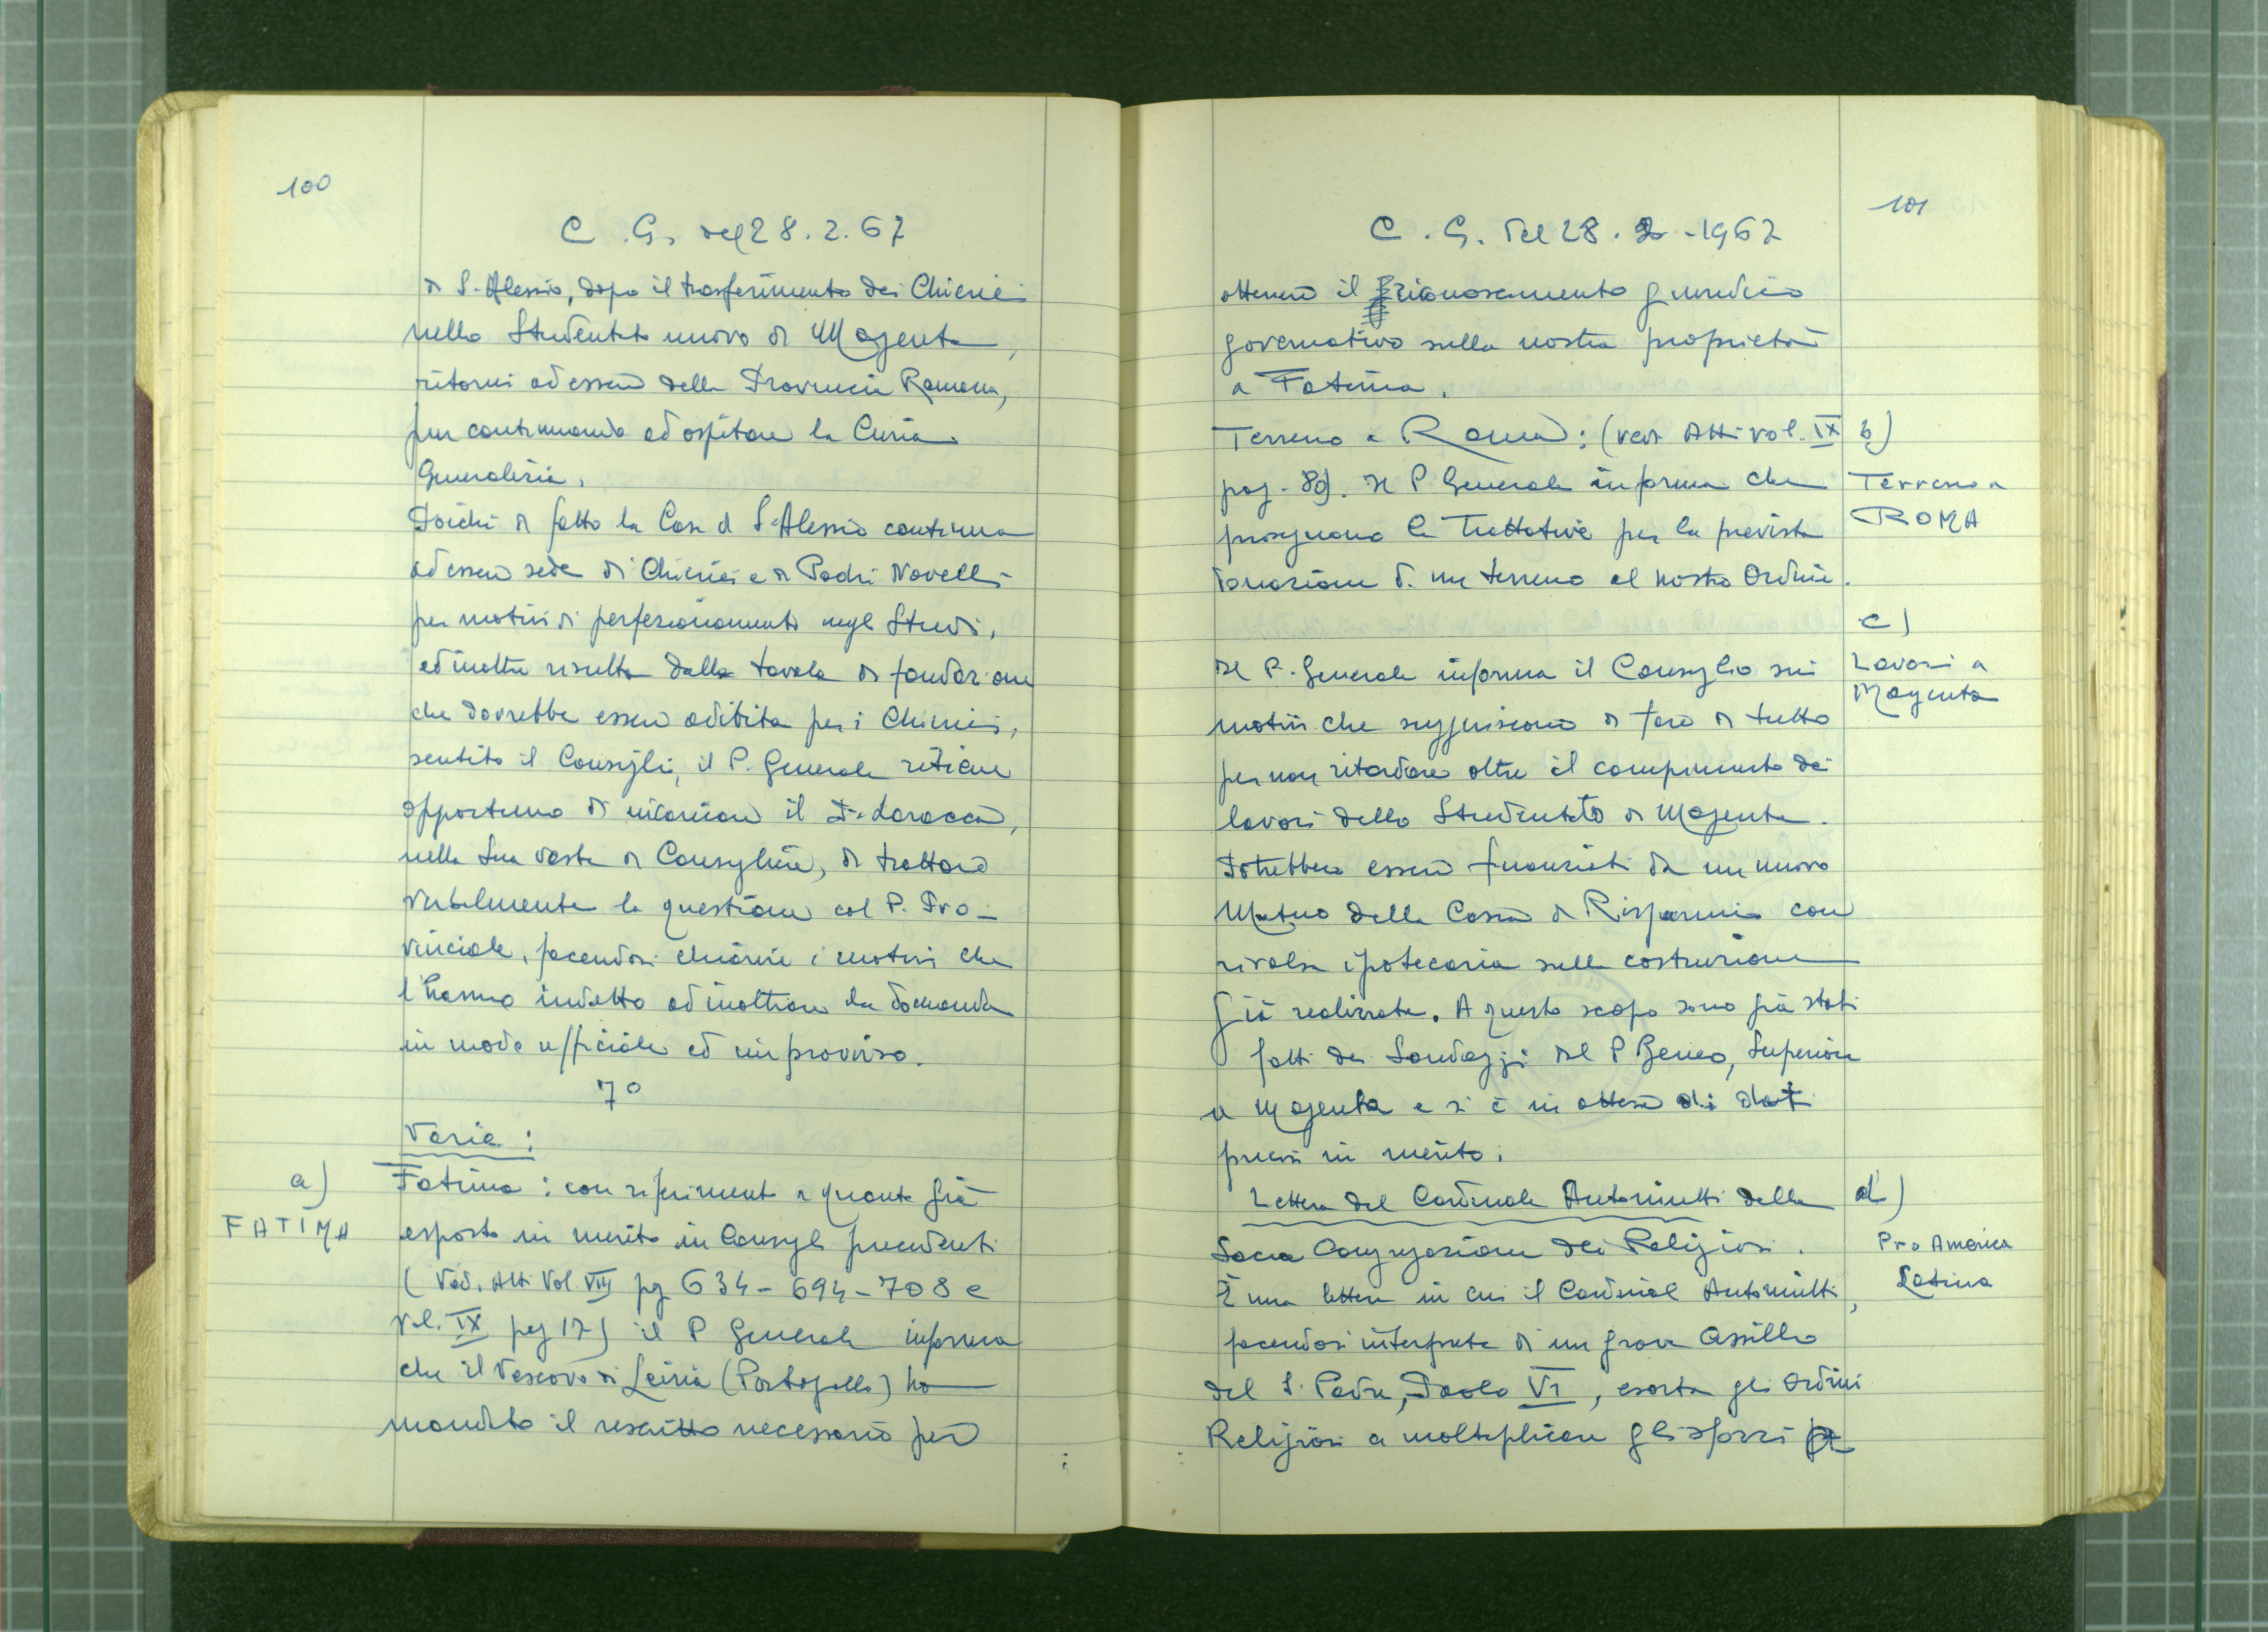 100
C. G. del 28. 2. 67
di S. Alessio, dopo il trasferimento dei Chierici
nello Studentato nuovo di Magenta,
ritorni ad essere della Provincia Romana,
pur continuando ad ospitare la Curia
Generalizia.
Poichè di fatto la Casa di S. Alessio continua
ad essere sede di Chierici e di Padri Novelli
per motivi di perfezionamento negli Studi,
ed inoltre risulta dalla tavola di fondazione
che dovrebbe essere adibita per i Chierici,
sentito il Consiglio, il P. Generale ritiene
opportuno di incaricare il P. Larocca,
nella sua veste di Consigliere, di trattare
verbalmente la questione col P. Pro-
vinciale, facendosi chiarire i motivi che
l'hanno indotto ad inoltrare la domanda
in modo ufficiale ed improvviso.
7°
Varie :
a)
FATIMA
Fatima : con riferimento a quanto già
esposto in merito in Consigli precedenti
(Ved. Atti Vol. VIII pg 634 - 694 - 708 e
Vol. IX pag 17) il P Generale informa
che il Vescovo di Leiria (Portogallo) ha
mandato il rescritto necessario per
101
C. G. del 28. 2 - 1967
ottenere il riconoscimento giuridico
governativo sulla nostra proprietà
a Fatima.
Terreno a Roma : (ved. Atti vol. IX
pag. 89). Il P. Generale informa che
proseguono le trattative per la prevista
donazione di un terreno al nostro Ordine.
b)
Terreno a
ROMA
c)
Lavori a
Magenta
Il P. Generale informa il Consiglio sui
motivi che suggeriscono di fare di tutto
per non ritardare oltre il compimento dei
lavori dello Studentato di Magenta.
Potrebbero essere finanziati da un nuovo
Mutuo della Cassa di Risparmio con
rivalsa ipotecaria sulla costruzione
già realizzata. A questo scopo sono già stati
fatti dei Sondaggi dal P Beneo, Superiore
a Magenta e si è in attesa di dati
precisi in merito.
Lettera del Cardinale Antoniutti della
Sacra Congregazione dei Religiosi.
d)
Pro America
Latina
È una lettera in cui il Cardinal Antoniutti,
facendosi interprete di un grave assillo
del S. Padre, Paolo VI, esorta gli Ordini
Religiosi a moltiplicare gli sforzi per